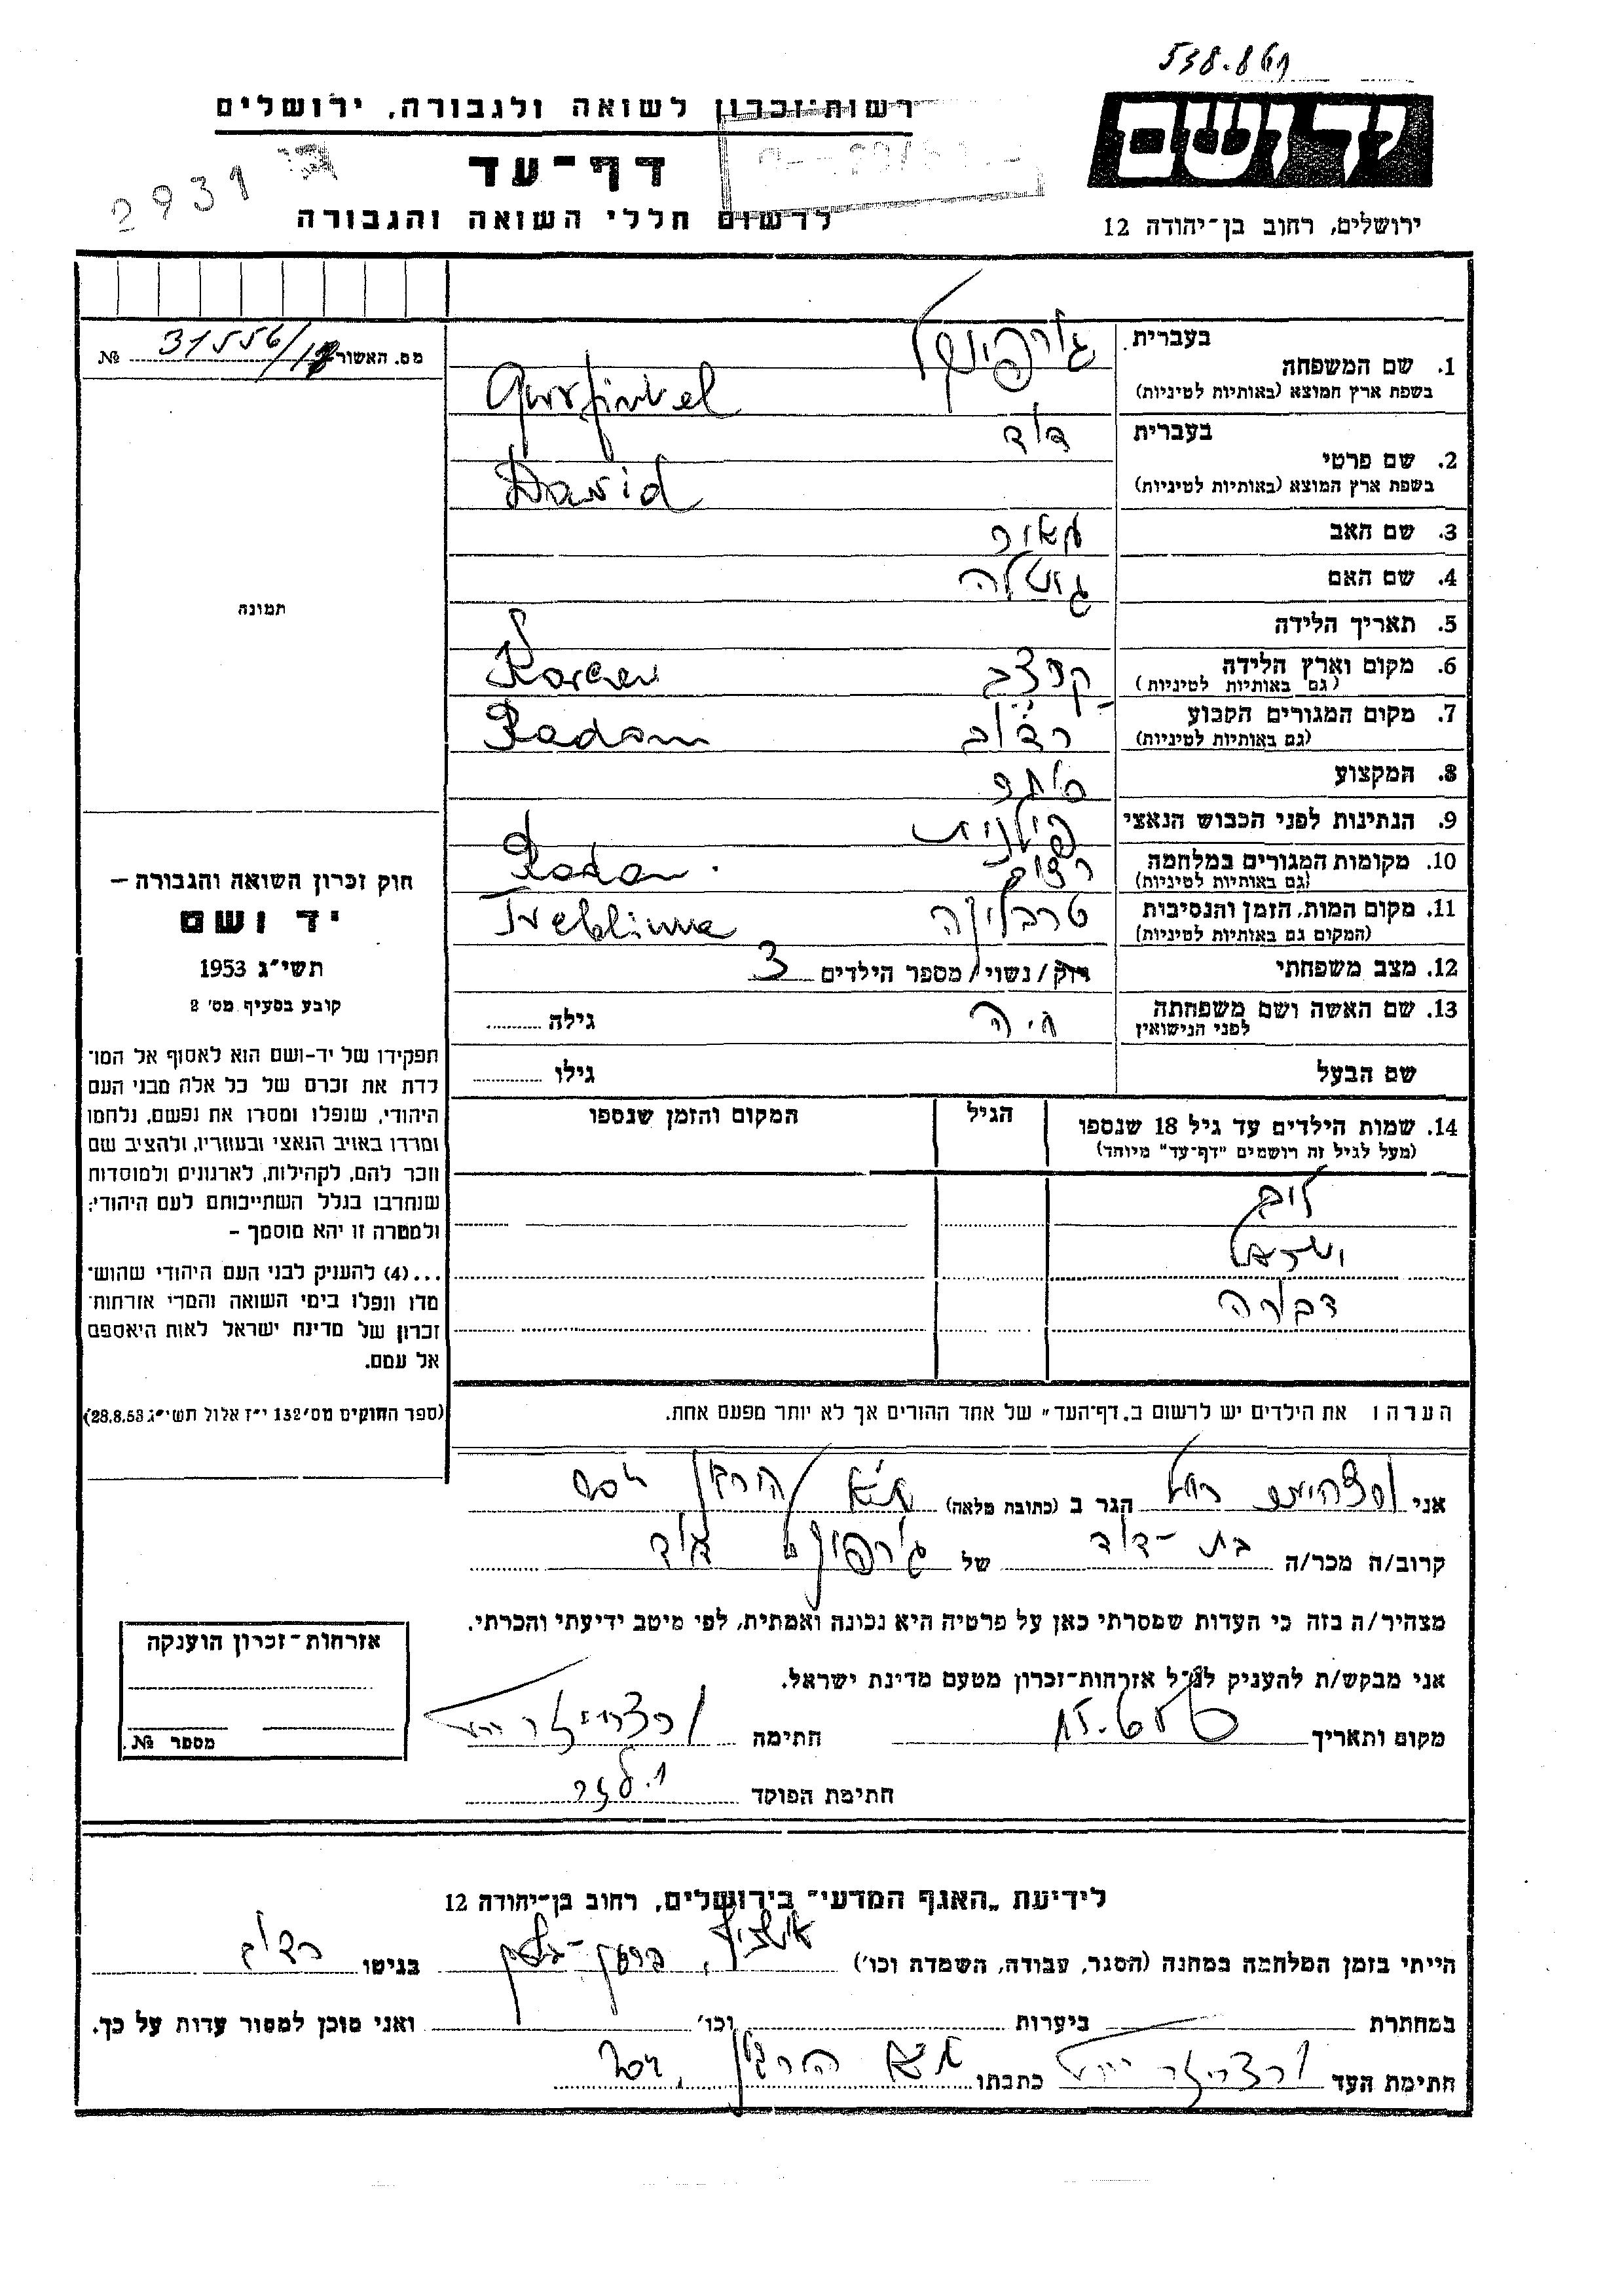 538.861
רשות־זכרון לשואה ולגבורה, ירושלים
יד ושם
2931
דף־עד
לרשום חללי השואה והגבורה
ירושלים, רחוב בן־יהודה 12
מס. האשור 31556/ №
1. שם המשפחה
בעברית גורפינקל
בשפת ארץ המוצא (באותיות לטיניות) Gurfinkel
2. שם פרטי
בעברית דוד
בשפת ארץ המוצא (באותיות לטיניות) Dawid
3. שם האב מאיר
4. שם האם גיטלה
5. תאריך הלידה
6. מקום וארץ הלידה
(גם באותיות לטיניות)
7. מקום המגורים הקבוע רדום Radom
(גם באותיות לטיניות)
8. המקצוע סוחר
9. הנתינות לפני הכבוש הנאצי פולנית
10. מקומות המגורים במלחמה רדום Radom
(גם באותיות לטיניות)
11. מקום המות, הזמן והנסיבות טרבלינקה Treblinka
(המקום גם באותיות לטיניות)
12. מצב משפחתי רוק/נשוי/מספר הילדים 3
13. שם האשה ושם משפחתה חיה גילה
לפני הנישואין
שם הבעל גילו
14. שמות הילדים עד גיל 18 שנספו הגיל המקום והזמן שנספו
(מעל לגיל זה רושמים "דף־עד" מיוחד)
ישראל
דבורה
תמונה
חוק זכרון השואה והגבורה –
יד ושם
תשי"ג 1953
קובע בסעיף מס' 2
תפקידו של יד-ושם הוא לאסוף אל המו־
לדת את זכרם של כל אלה מבני העם
היהודי, שנפלו ומסרו את נפשם, נלחמו
ומרדו באויב הנאצי ובעוזריו, ולהציב שם
וזכר להם, לקהילות, לארגונים ולמוסדות
שנחרבו בגלל השתייכותם לעם היהודי;
ולמטרה זו יהא מוסמך –
...(4) להעניק לבני העם היהודי שהוש־
מדו ונפלו בימי השואה והמרי אזרחות־
זכרון של מדינת ישראל לאות היאספם
אל עמם.
(ספר החוקים מס' 132 י"ז אלול תשי"ג 28.8.53)
הערה: את הילדים יש לרשום ב"דף־העד" של אחד ההורים אך לא יותר מפעם אחת.
אני רחל הגר ב (כתובת מלאה) ת"א
קרוב/ה מכר/ה בת-דוד של גורפינקל דוד
מצהיר/ה בזה כי העדות שמסרתי כאן על פרטיה היא נכונה ואמתית, לפי מיטב ידיעתי והכרתי.
אני מבקש/ת להעניק לנ"ל אזרחות־זכרון מטעם מדינת ישראל.
מקום ותאריך חתימה
חתימת הפוקד
אזרחות־זכרון הוענקה
מספר №.
לידיעת "האגף המדעי" בירושלים, רחוב בן־יהודה 12
הייתי בזמן המלחמה במחנה (הסגר, עבודה, השמדה וכו') אושביץ, ברגן-בלזן בגיטו רדום
במחתרת ביערות וכו' ואני מוכן למסור עדות על כך.
חתימת העד כתבתו ת"א